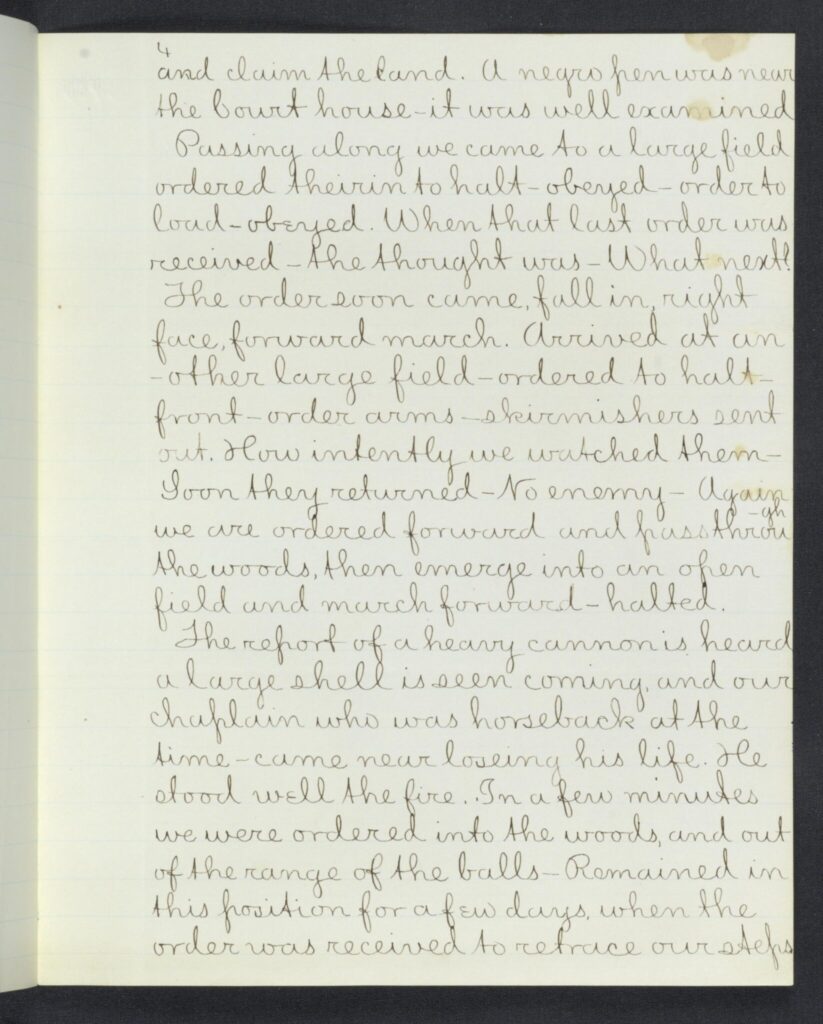 4
and claim the land. A negro pen was near
the Court house - it was well examined
Passing along we came to a large field
ordered theirin to halt - obeyed - order to
load - obeyed. When that last order was
received - the thought was - What next!
The order soon came, fall in, right
face, forward march. Arrived at an
-other large field - ordered to halt -
front - order arms - skirmishers sent
out. How intently we watched them -
Soon they returned - No enemy - Again
we are ordered forward and pass throu
-gh
the woods, then emerge into an open
field and march forward - halted.
The report of a heavy cannon is heard
a large shell is seen coming, and our
chaplain who was horseback at the
time - came near loseing his life. He
stood well the fire. In a few minutes
we were ordered into the woods, and out
of the range of the balls - Remained in
this position for a few days, when the
order was received to retrace our steps